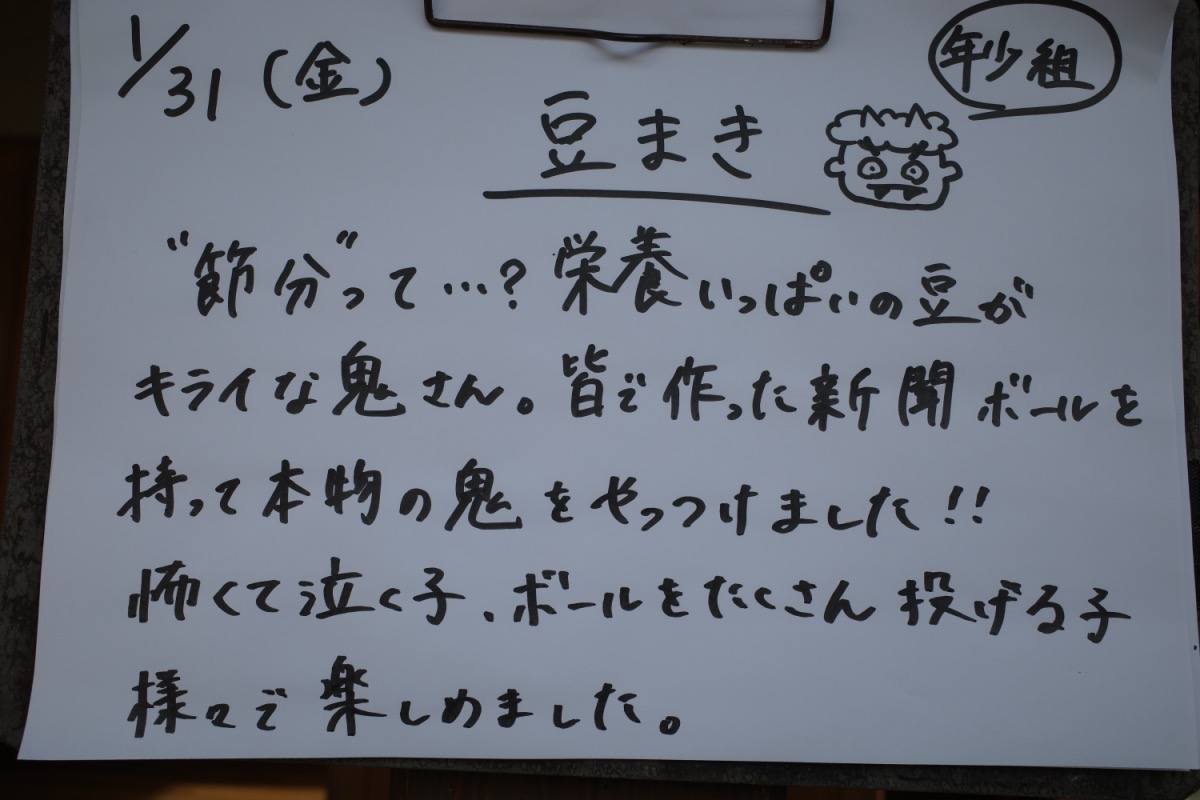 1/31(金)
年少組
豆まき
"節分"って…?栄養いっぱいの豆が
キライな鬼さん。皆で作った新聞ボールを
持って本物の鬼をやっつけました!!
怖くて泣く子、ボールをたくさん投げる子
様々で楽しめました。